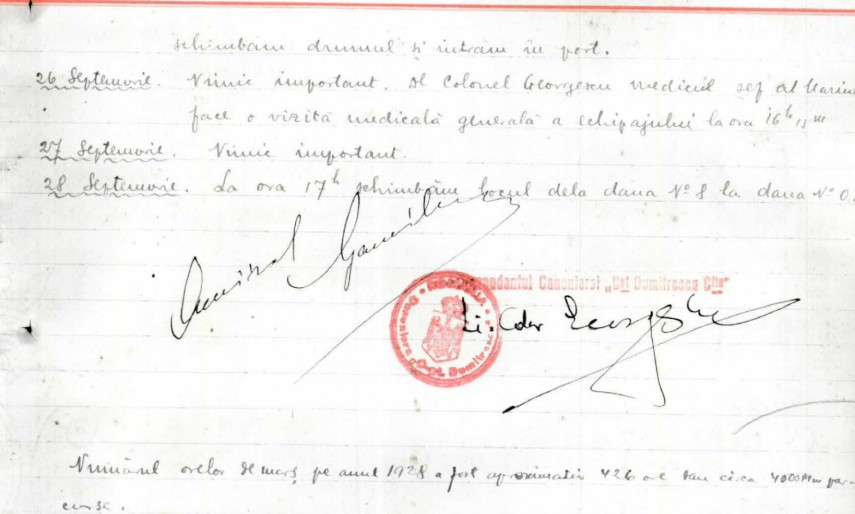 schimbăm drumul și intrăm în port.
26 Septemvrie. Nimic important. Dl Colonel Georgescu medicul șef al Marinei
face o vizită medicală generală a echipajului la ora 16h 15m
27 Septemvrie. Nimic important.
28 Septemvrie. La ora 17h schimbăm locul dela dana No 8 la dana No 0.
Comandantul Canonierei „Cpt Dumitrescu Ctin"
Lt. Cdor
Numărul orelor de marș pe anul 1928 a fost aproximativ 426 ore sau circa 4000 Mm par-
curse.